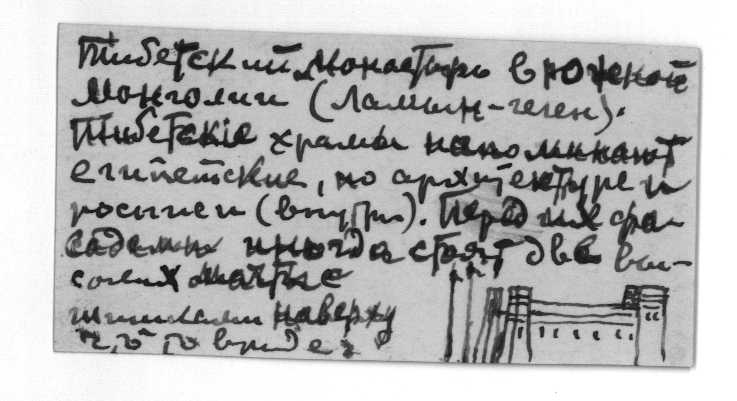 Тибетский монастырь в южной
Монголии (Ламын-геген).
Тибетскіе храмы напоминают
египетские, по архитектуре и
росписи (внутри). Перед их фа-
садами иногда стоят две вы-
соких мачты с
шишками наверху